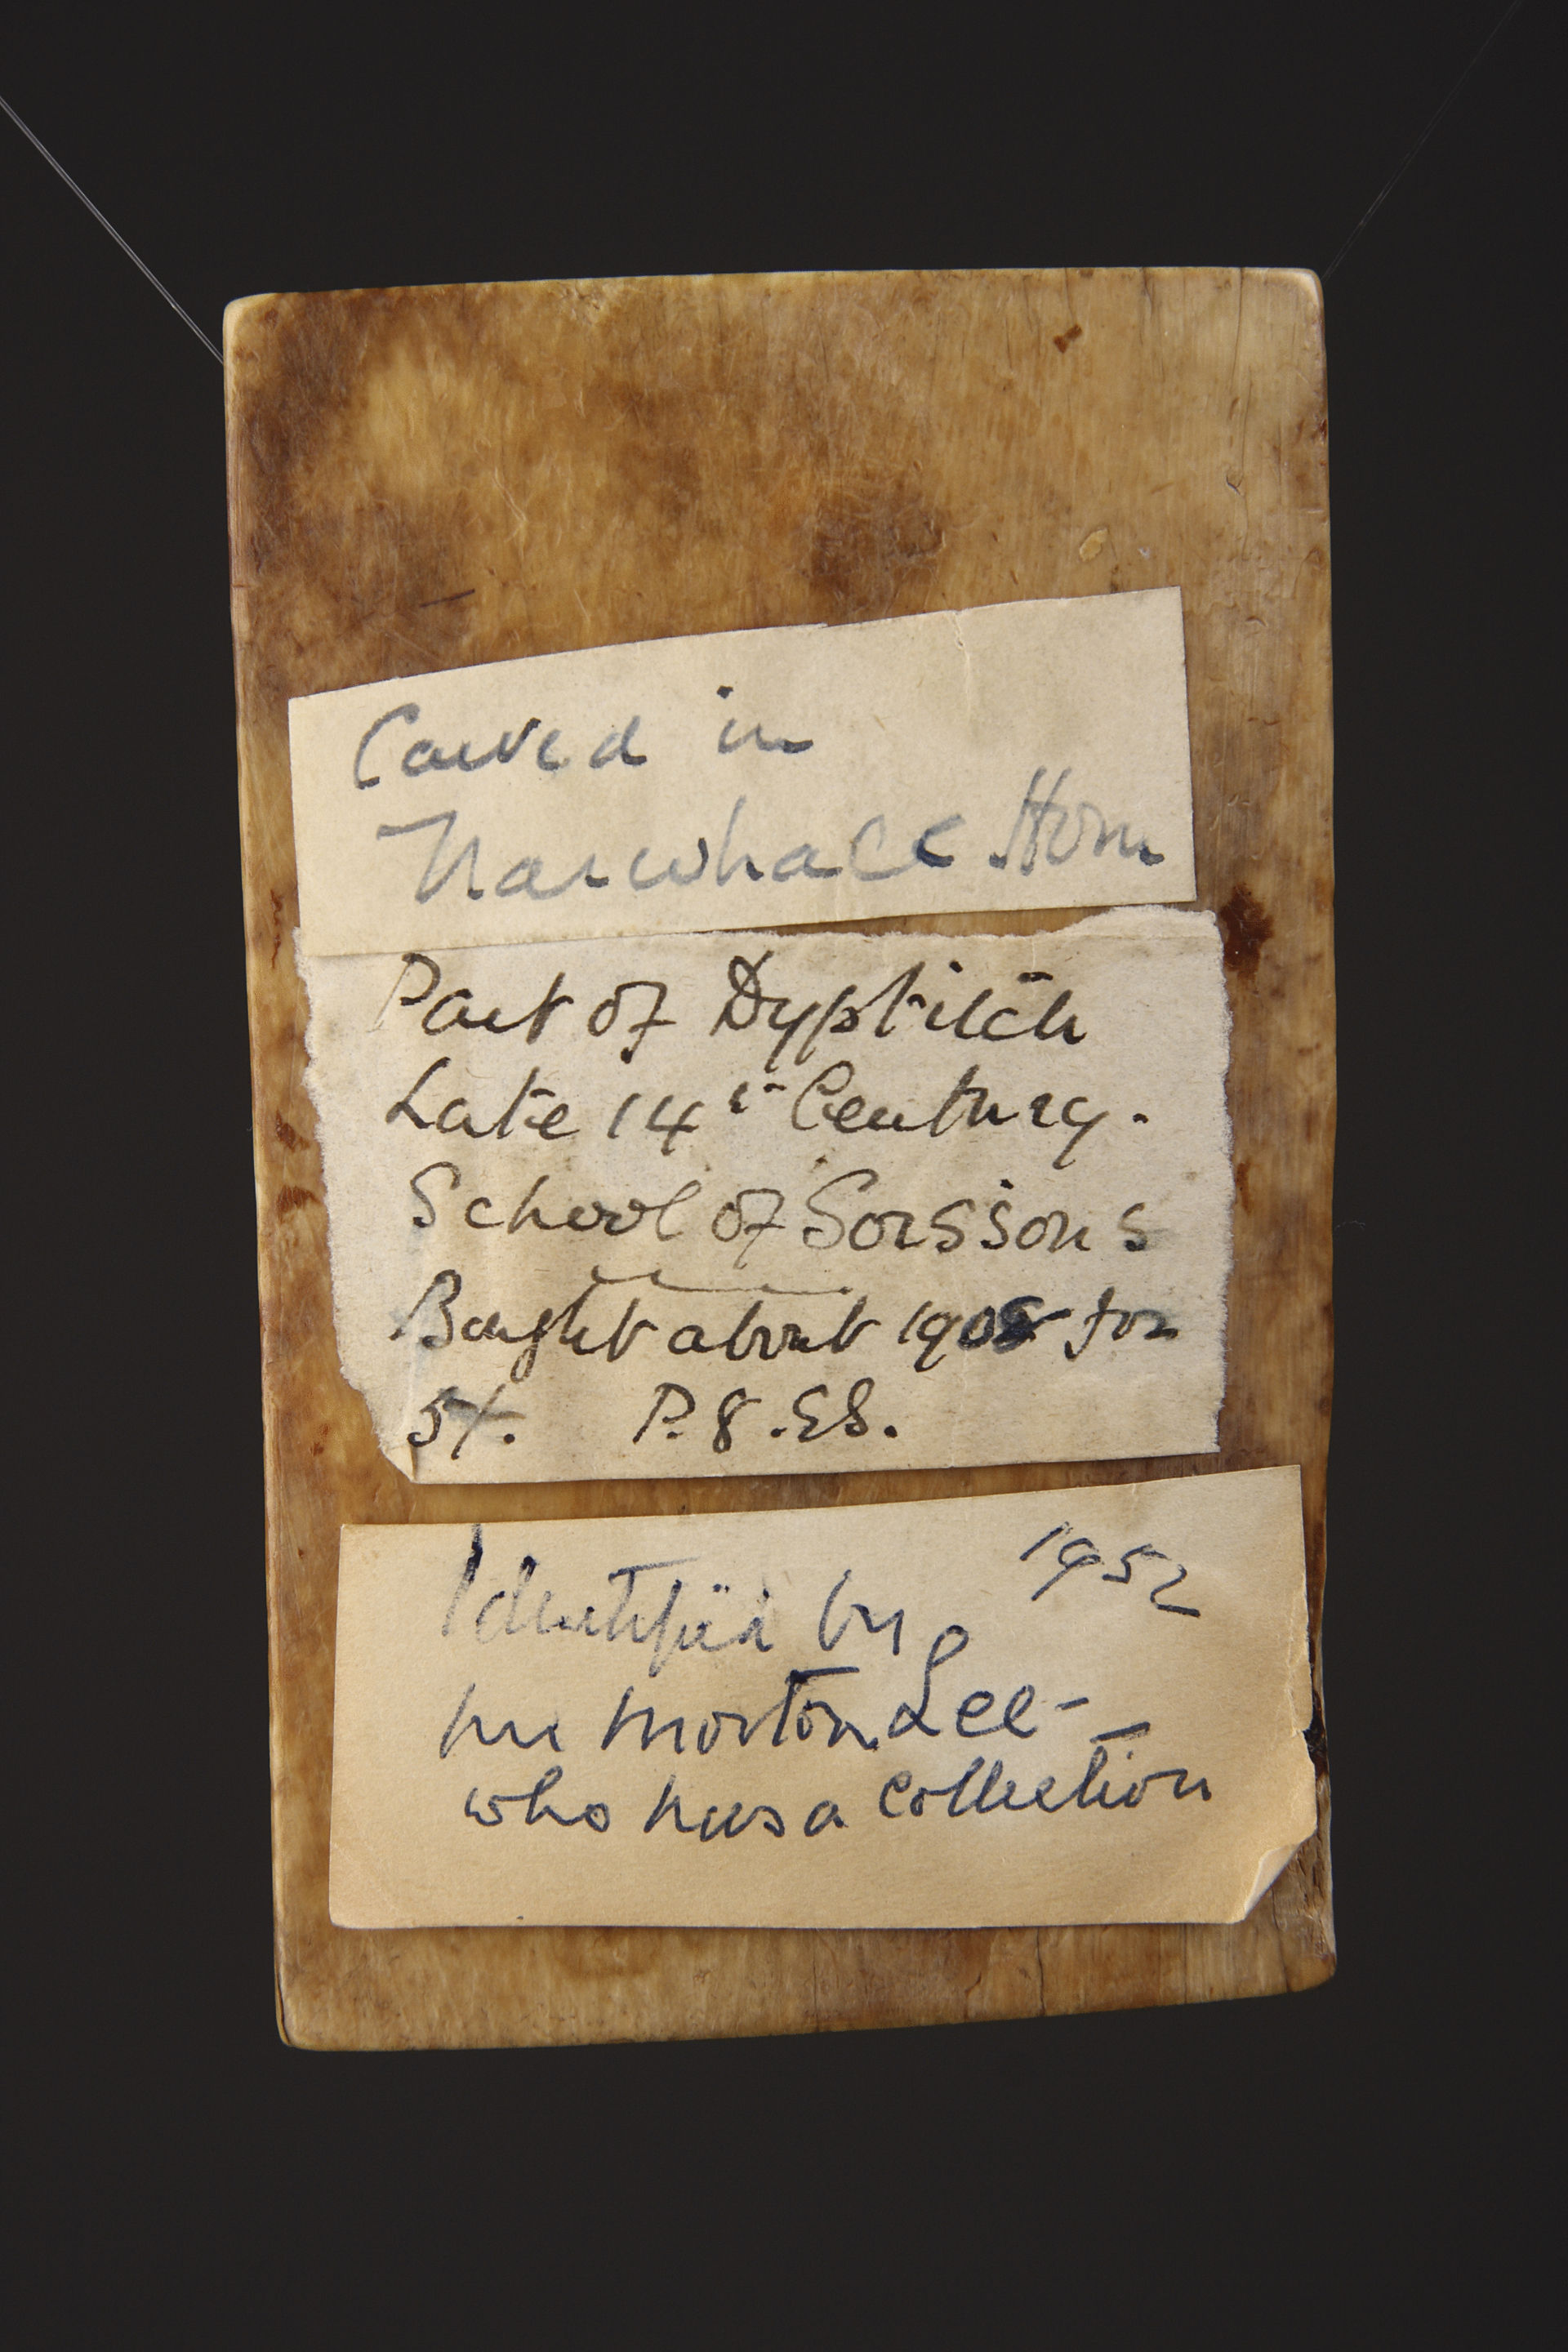 Carved in
Narwhale Horn
Part of Dyptitch
Late 14th Century.
School of Soissons
Bought about 1908 for
5/.
Identified by 1952
Mr Morton Lee-
who has a collection